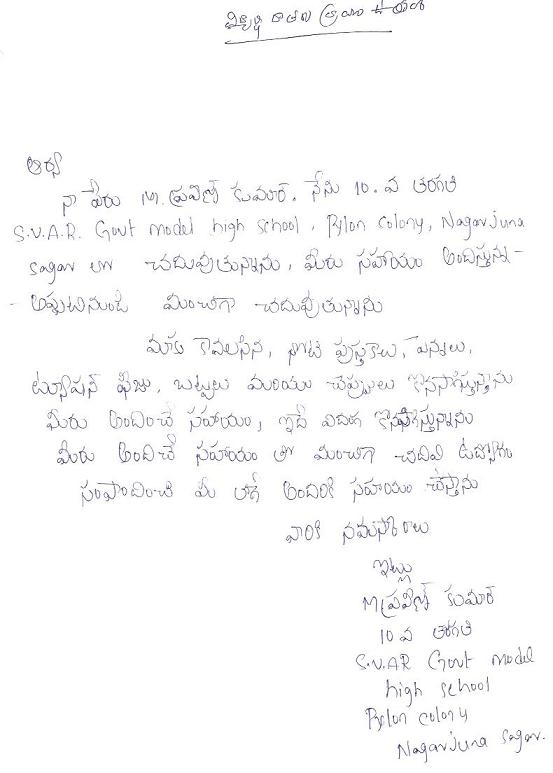 విద్యార్థి
ఆర్య
నా పేరు M. ప్రవీణ్ కుమార్. నేను 10. వ తరగతి
S.V.A.R. Govt model high school, Pylon colony, Nagarjuna
sagar లో చదువుతున్నాను, మీరు సహాయం అందిస్తున్న-
- అప్పటినుండి మంచిగా చదువుతున్నాను
మాకు కావలసిన, నోట్ పుస్తకాలు, పెన్నులు,
ట్యూషన్ ఫీజు, బట్టలు మరియు చెప్పులు కొనసాగిస్తున్నాను
మీరు అందించే సహాయం, ఇదే విదంగా కొనసాగిస్తున్నాను
మీరు అందిచే సహాయం తో మంచిగా చదివి ఉద్యోగం
సంపాదించి మీ లాగే అందరికి సహాయం చేస్తాను
వారికి నమస్కారాలు
ఇట్లు
M ప్రవీణ్ కుమార్
10 వ తరగతి
S.V.A.R Govt model
high school
Pylon colony
Nagarjuna sagar.